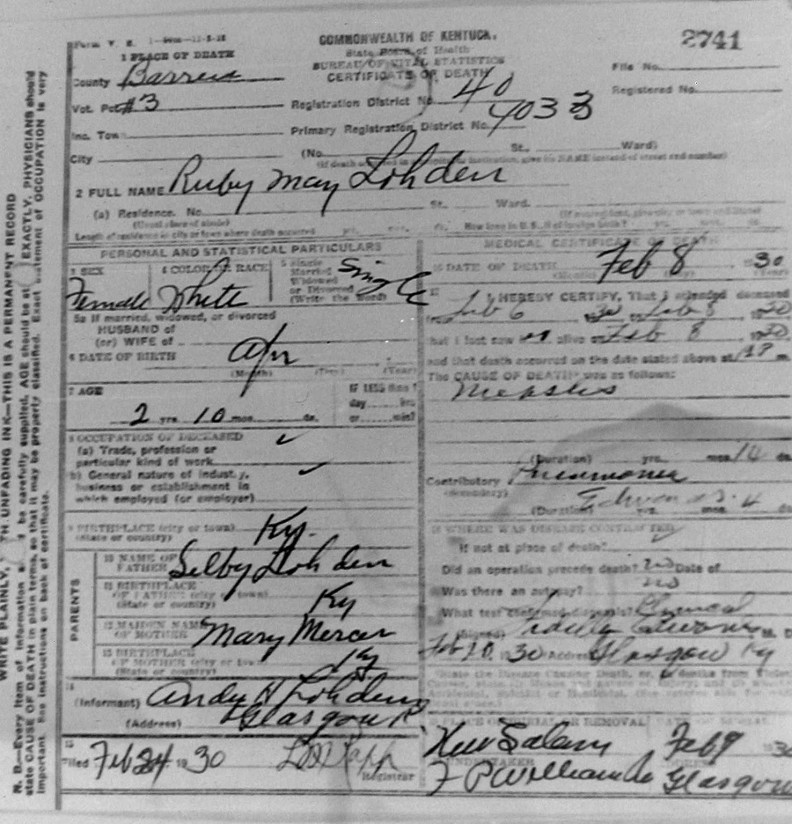 2741
Form V. S.
COMMONWEALTH OF KENTUCKY.
State Board of Health
BUREAU OF VITAL STATISTICS
CERTIFICATE OF DEATH
1 PLACE OF DEATH
County Barren
File No.
Registered No.
Vot. Pct #3
Registration District No. 40
Inc. Town
Primary Registration District No. 4033
City
(No. St., Ward)
2 FULL NAME Ruby May Lohden
(a) Residence. No. St. Ward.
(Usual place of abode)
Length of residence in city or town where death occurred
PERSONAL AND STATISTICAL PARTICULARS
3 SEX
Female
4 COLOR OR RACE
White
5 Single
Married
Widowed
or Divorced
(Write the word)
Single
5a If married, widowed, or divorced
HUSBAND of
(or) WIFE of
6 DATE OF BIRTH Apr
(Month) (Day) (Year)
7 AGE
2 yrs. 10 mos. ds.
IF LESS than 1
day hrs.
or min?
8 OCCUPATION OF DECEASED
(a) Trade, profession or
particular kind of work
(b) General nature of industry,
business or establishment in
which employed (or employer)
9 BIRTHPLACE (city or town)
(State or country) Ky.
PARENTS
10 NAME OF
FATHER Selby Lohden
11 BIRTHPLACE
OF FATHER (city or town)
(State or country) Ky
12 MAIDEN NAME
OF MOTHER Mary Mercer
13 BIRTHPLACE
OF MOTHER (city or town)
(State or country) Ky
14
(Informant) Andy H Lohden
(Address) Glasgow
15
Filed Feb 24 1930
Registrar
MEDICAL CERTIFICATE OF DEATH
16 DATE OF DEATH Feb 8 1930
17
I HEREBY CERTIFY, That I attended deceased
from Feb 6 30 to Feb 8 1930
that I last saw alive on Feb 8 1930
and that death occurred on the date stated above at
The CAUSE OF DEATH* was as follows:
Measles
(Duration) yrs. mos. 14 ds.
Contributory Pneumonia
(Secondary)
(Duration) yrs. mos. 4 ds.
18 WHERE WAS DISEASE CONTRACTED
If not at place of death?
Did an operation precede death? no Date of
Was there an autopsy? no
What test confirmed diagnosis?
(Signed) M. D.
Feb 20, 30 Address Glasgow Ky
19 PLACE OF BURIAL OR REMOVAL DATE OF BURIAL
New Salem Feb 9 1930
20 UNDERTAKER ADDRESS
F P Williams Glasgow
WRITE PLAINLY, WITH UNFADING INK—THIS IS A PERMANENT RECORD
N. B.—Every item of information should be carefully supplied. AGE should be stated EXACTLY. PHYSICIANS should
state CAUSE OF DEATH in plain terms, so that it may be properly classified. Exact statement of OCCUPATION is very
important. See instructions on back of certificate.